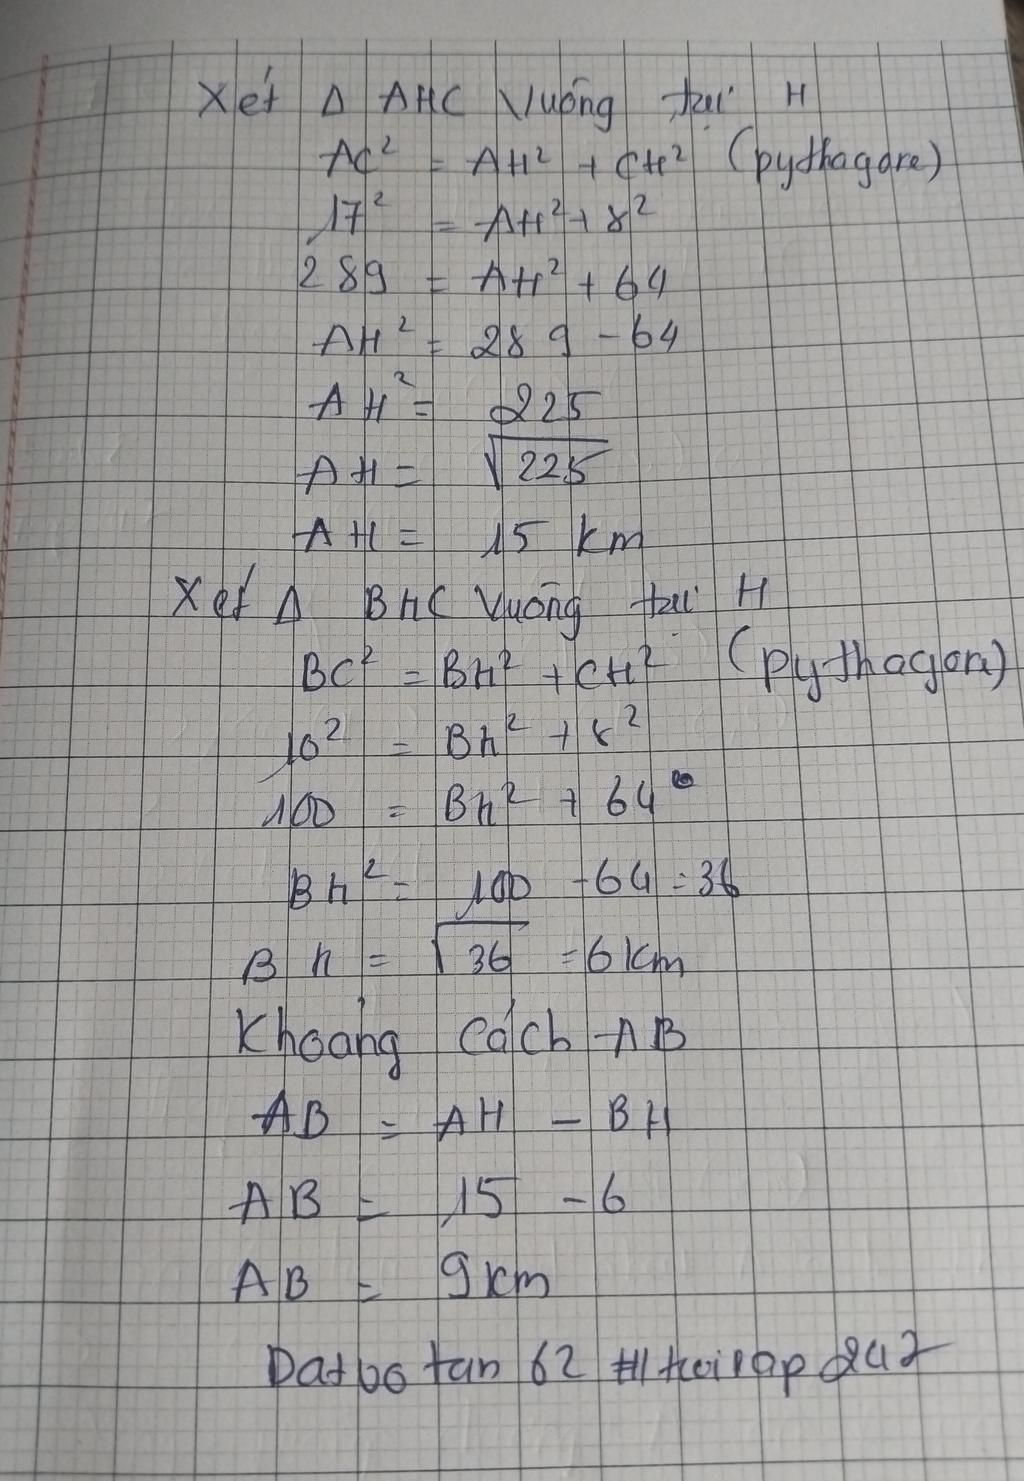 Xét Δ AHC Vuông tại H
AC² = AH² + CH² (pythagore)
17² = AH² + 8²
289 = AH² + 64
AH² = 289 - 64
AH² = 225
AH = √225
AH = 15 km
Xét Δ BHC Vuông tại H
BC² = BH² + CH² (pythagore)
10² = Bh² + 8²
100 = Bh² + 64
Bh² = 100 - 64 = 36
Bh = √36 = 6 km
Khoảng Cách AB
AB = AH - BH
AB = 15 - 6
AB = 9 km
tan 62 247